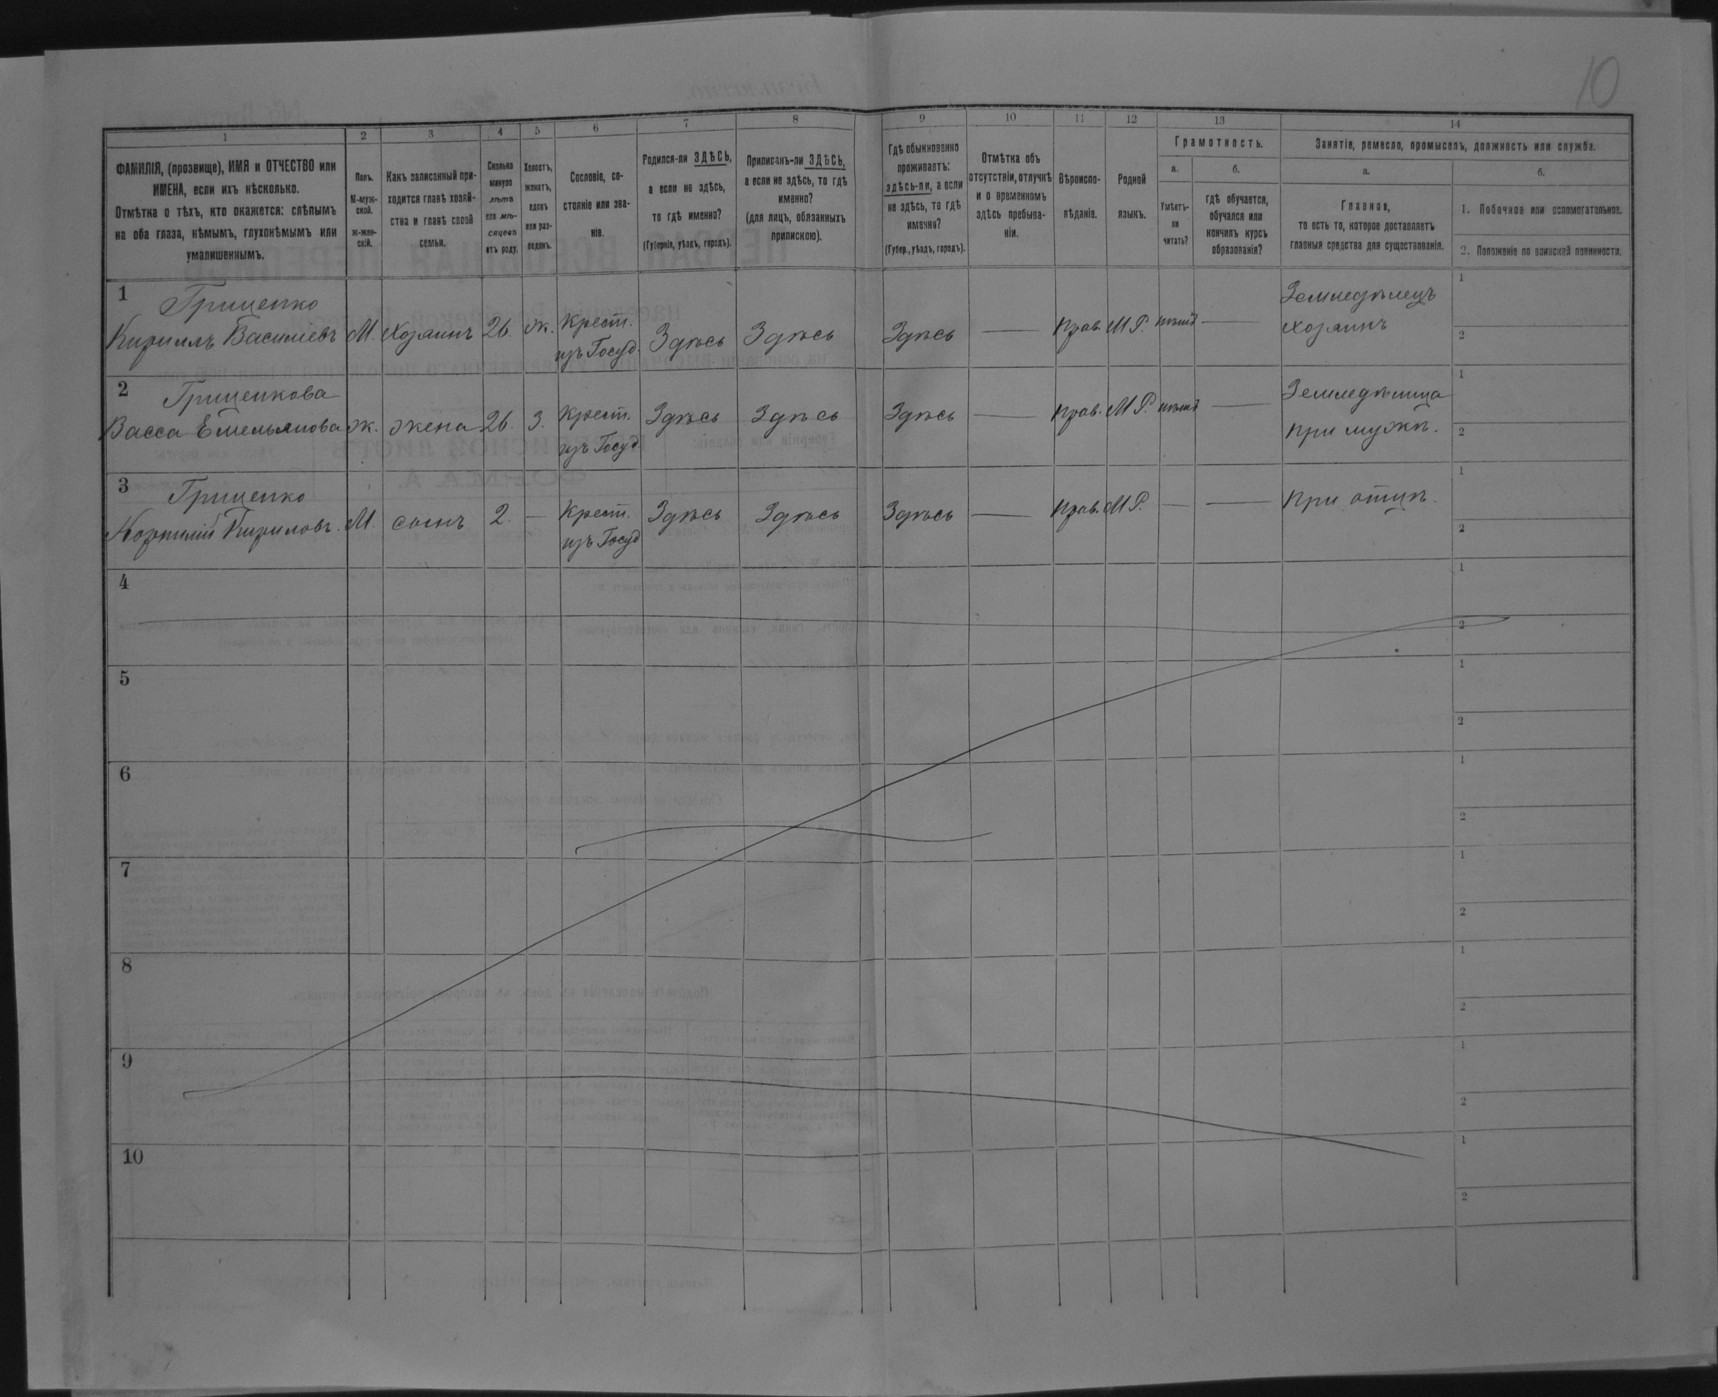 10
1 2 3 4 5 6 7 8 9 10 11 12 13 14
ФАМИЛІЯ, (прозвище), ИМЯ и ОТЧЕСТВО или
ИМЕНА, если ихъ нѣсколько.
Отмѣтка о тѣхъ, кто окажется: слѣпымъ
на оба глаза, нѣмымъ, глухонѣмымъ или
умалишеннымъ.
Полъ.
М-муж-
ской.
ж-жен-
скій.
Какъ записанный при-
ходится главѣ хозяй-
ства и главѣ своей
семьи.
Сколько
минуло
лѣтъ
или мѣ-
сяцевъ
отъ роду.
Холостъ,
женатъ,
вдовъ
или раз-
веденъ.
Сословіе, со-
стояніе или зва-
ніе.
Родился-ли ЗДѢСЬ,
а если не здѣсь,
то гдѣ именно?
(Губернія, уѣздъ, городъ).
Приписанъ-ли ЗДѢСЬ,
а если не здѣсь, то гдѣ
именно?
(для лицъ, обязанныхъ
припискою).
Гдѣ обыкновенно
проживаетъ:
здѣсь-ли, а если
не здѣсь, то гдѣ
именно?
(Губер., уѣздъ, городъ).
Отмѣтка объ
отсутствіи, отлучкѣ
и о временномъ
здѣсь пребыва-
ніи.
Вѣроиспо-
вѣданіе.
Родной
языкъ.
Грамотность.
а.
Умѣетъ-
ли
читать?
б.
гдѣ обучается,
обучался или
кончилъ курсъ
образованія?
Занятіе, ремесло, промыселъ, должность или служба.
а.
Главное,
то есть то, которое доставляетъ
главныя средства для существованія.
б.
1. Побочное или вспомогательное.
2. Положеніе по воинской повинности.
1 Гриценко
Кириллъ Васильевъ М. Хозяинъ 26. ж. Крест. изъ Госуд. Здѣсь Здѣсь Здѣсь — Прав. М.Р. нѣтъ — Земледѣлецъ
хозяинъ
1
2
2 Гриценкова
Васса Емельянова ж. жена 26. З. Крест. изъ Госуд Здѣсь Здѣсь Здѣсь — Прав. М.Р. нѣтъ — Земледѣлица
при мужѣ.
1
2
3 Гриценко
Корнилій Кириловъ. М. сынъ 2. — Крест. изъ Госуд Здѣсь Здѣсь Здѣсь — Прав. М.Р. — — При отцѣ.
1
2
4
1
2
5
1
2
6
1
2
7
1
2
8
1
2
9
1
2
10
1
2